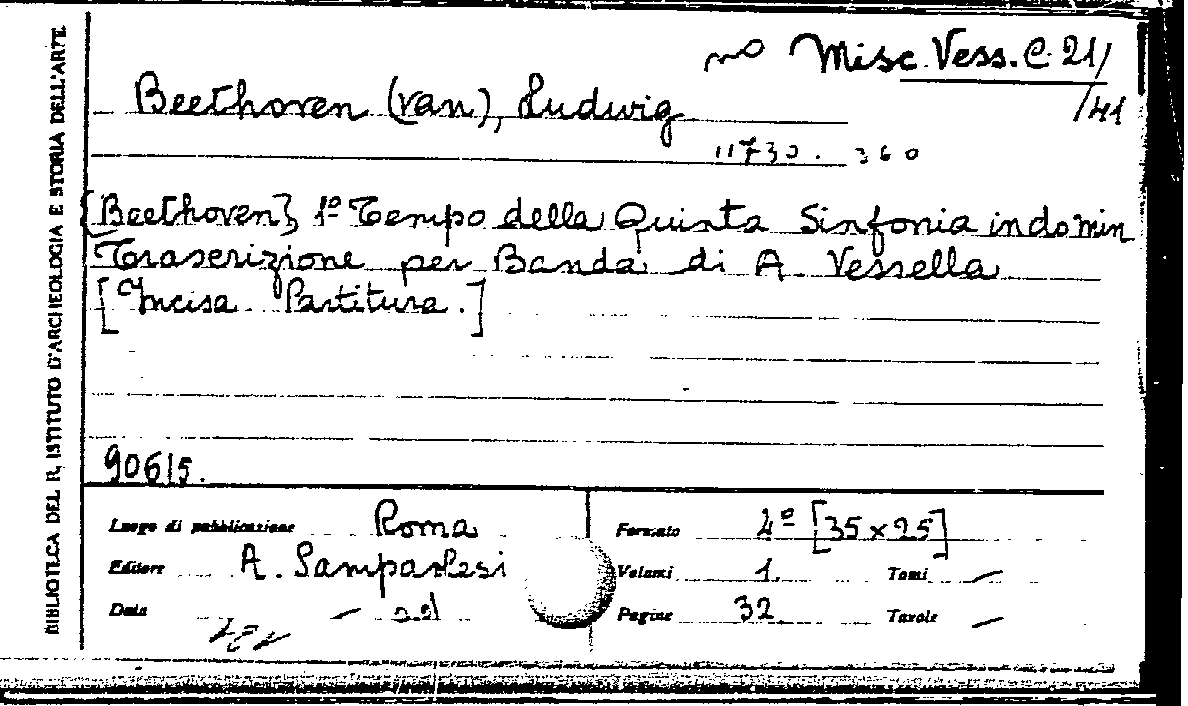 BIBLIOTECA DEL R. ISTITUTO D'ARCHEOLOGIA E STORIA DELL'ARTE
Misc. Vess. C. 21/
/41
Beethoven (van), Ludwig
11730. 360
[Beethoven], 1º Tempo della Quinta Sinfonia in do min
Trascrizione per Banda di A. Vessella
[Incisa Partitura.]
90615.
Luogo di pubblicazione Roma
Editore A. Sampaolesi
Data — s.d
Formato 4º [35 x 25]
Volumi 1. Tomi —
Pagine 32 Tavole —